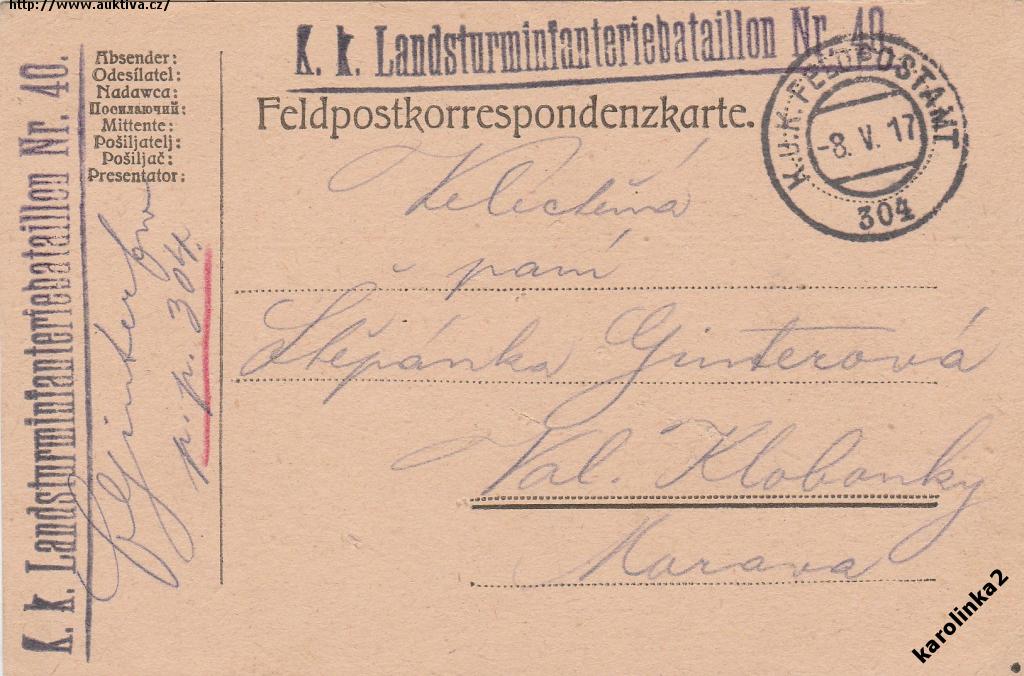 http://www.auktiva.cz/
K. k. Landsturminfanteriebataillon Nr. 40.
K. k. Landsturminfanteriebataillon Nr. 40
Absender:
Odesílatel:
Nadawca:
Посилаючий:
Mittente:
Pošiljatelj:
Pošiljač:
Presentator:
Feldpostkorrespondenzkarte.
K.u.K. FELDPOSTAMT
-8. V. 17
304
p. p. 304.
Velectěná
paní
Štěpánka Ginterová
Val. Klobouky
Morava
karolinka2